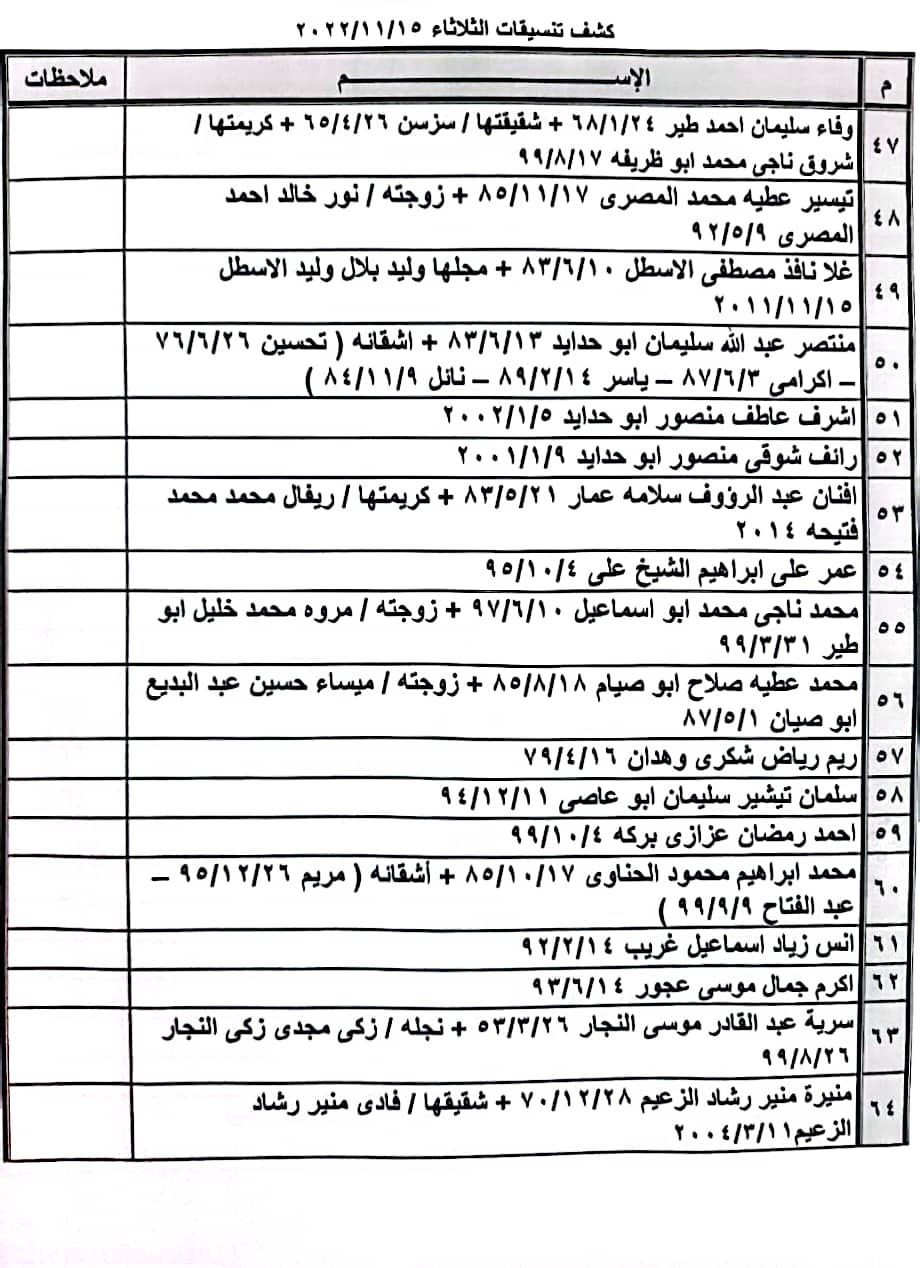 كشف تنسيقات الثلاثاء ٢٠٢٢/١١/١٥
م الإســـــــــم ملاحظات
٤٧ وفاء سليمان احمد طير ٦٨/١/٢٤ + شقيقتها / سزسن ٦٥/٤/٢٦ + كريمتها /
شروق ناجى محمد ابو ظريفه ٩٩/٨/١٧
٤٨ تيسير عطيه محمد المصرى ٨٥/١١/١٧ + زوجته / نور خالد احمد
المصرى ٩٢/٥/٩
٤٩ غلا نافذ مصطفى الاسطل ٨٣/٦/١٠ + مجلها وليد بلال وليد الاسطل
٢٠١١/١١/١٥
٥٠ منتصر عبد الله سليمان ابو حدايد ٨٣/٦/١٣ + اشقائه ( تحسين ٧٦/٦/٢٦
– اكرامى ٨٧/٦/٣ – ياسر ٨٩/٢/١٤ – نائل ٨٤/١١/٩ )
٥١ اشرف عاطف منصور ابو حدايد ٢٠٠٢/١/٥
٥٢ رائف شوقى منصور ابو حدايد ٢٠٠١/١/٩
٥٣ افنان عبد الرؤوف سلامه عمار ٨٣/٥/٢١ + كريمتها / ريفال محمد محمد
فتيحه ٢٠١٤
٥٤ عمر على ابراهيم الشيخ على ٩٥/١٠/٤
٥٥ محمد ناجى محمد ابو اسماعيل ٩٧/٦/١٠ + زوجته / مروه محمد خليل ابو
طير ٩٩/٣/٣١
٥٦ محمد عطيه صلاح ابو صيام ٨٥/٨/١٨ + زوجته / ميساء حسين عبد البديع
ابو صيان ٨٧/٥/١
٥٧ ريم رياض شكرى وهدان ٧٩/٤/١٦
٥٨ سلمان تيشير سليمان ابو عاصى ٩٤/١٢/١١
٥٩ احمد رمضان عزازى بركه ٩٩/١٠/٤
٦٠ محمد ابراهيم محمود الحناوى ٨٥/١٠/١٧ + أشقائه ( مريم ٩٥/١٢/٢٦ –
عبد الفتاح ٩٩/٩/٩ )
٦١ انس زياد اسماعيل غريب ٩٢/٢/١٤
٦٢ اكرم جمال موسى عجور ٩٣/٦/١٤
٦٣ سرية عبد القادر موسى النجار ٥٣/٣/٢٦ + نجله / زكى مجدى زكى النجار
٩٩/٨/٢٦
٦٤ منيرة منير رشاد الزعيم ٧٠/١٢/٢٨ + شقيقها / فادى منير رشاد
الزعيم ٢٠٠٤/٣/١١